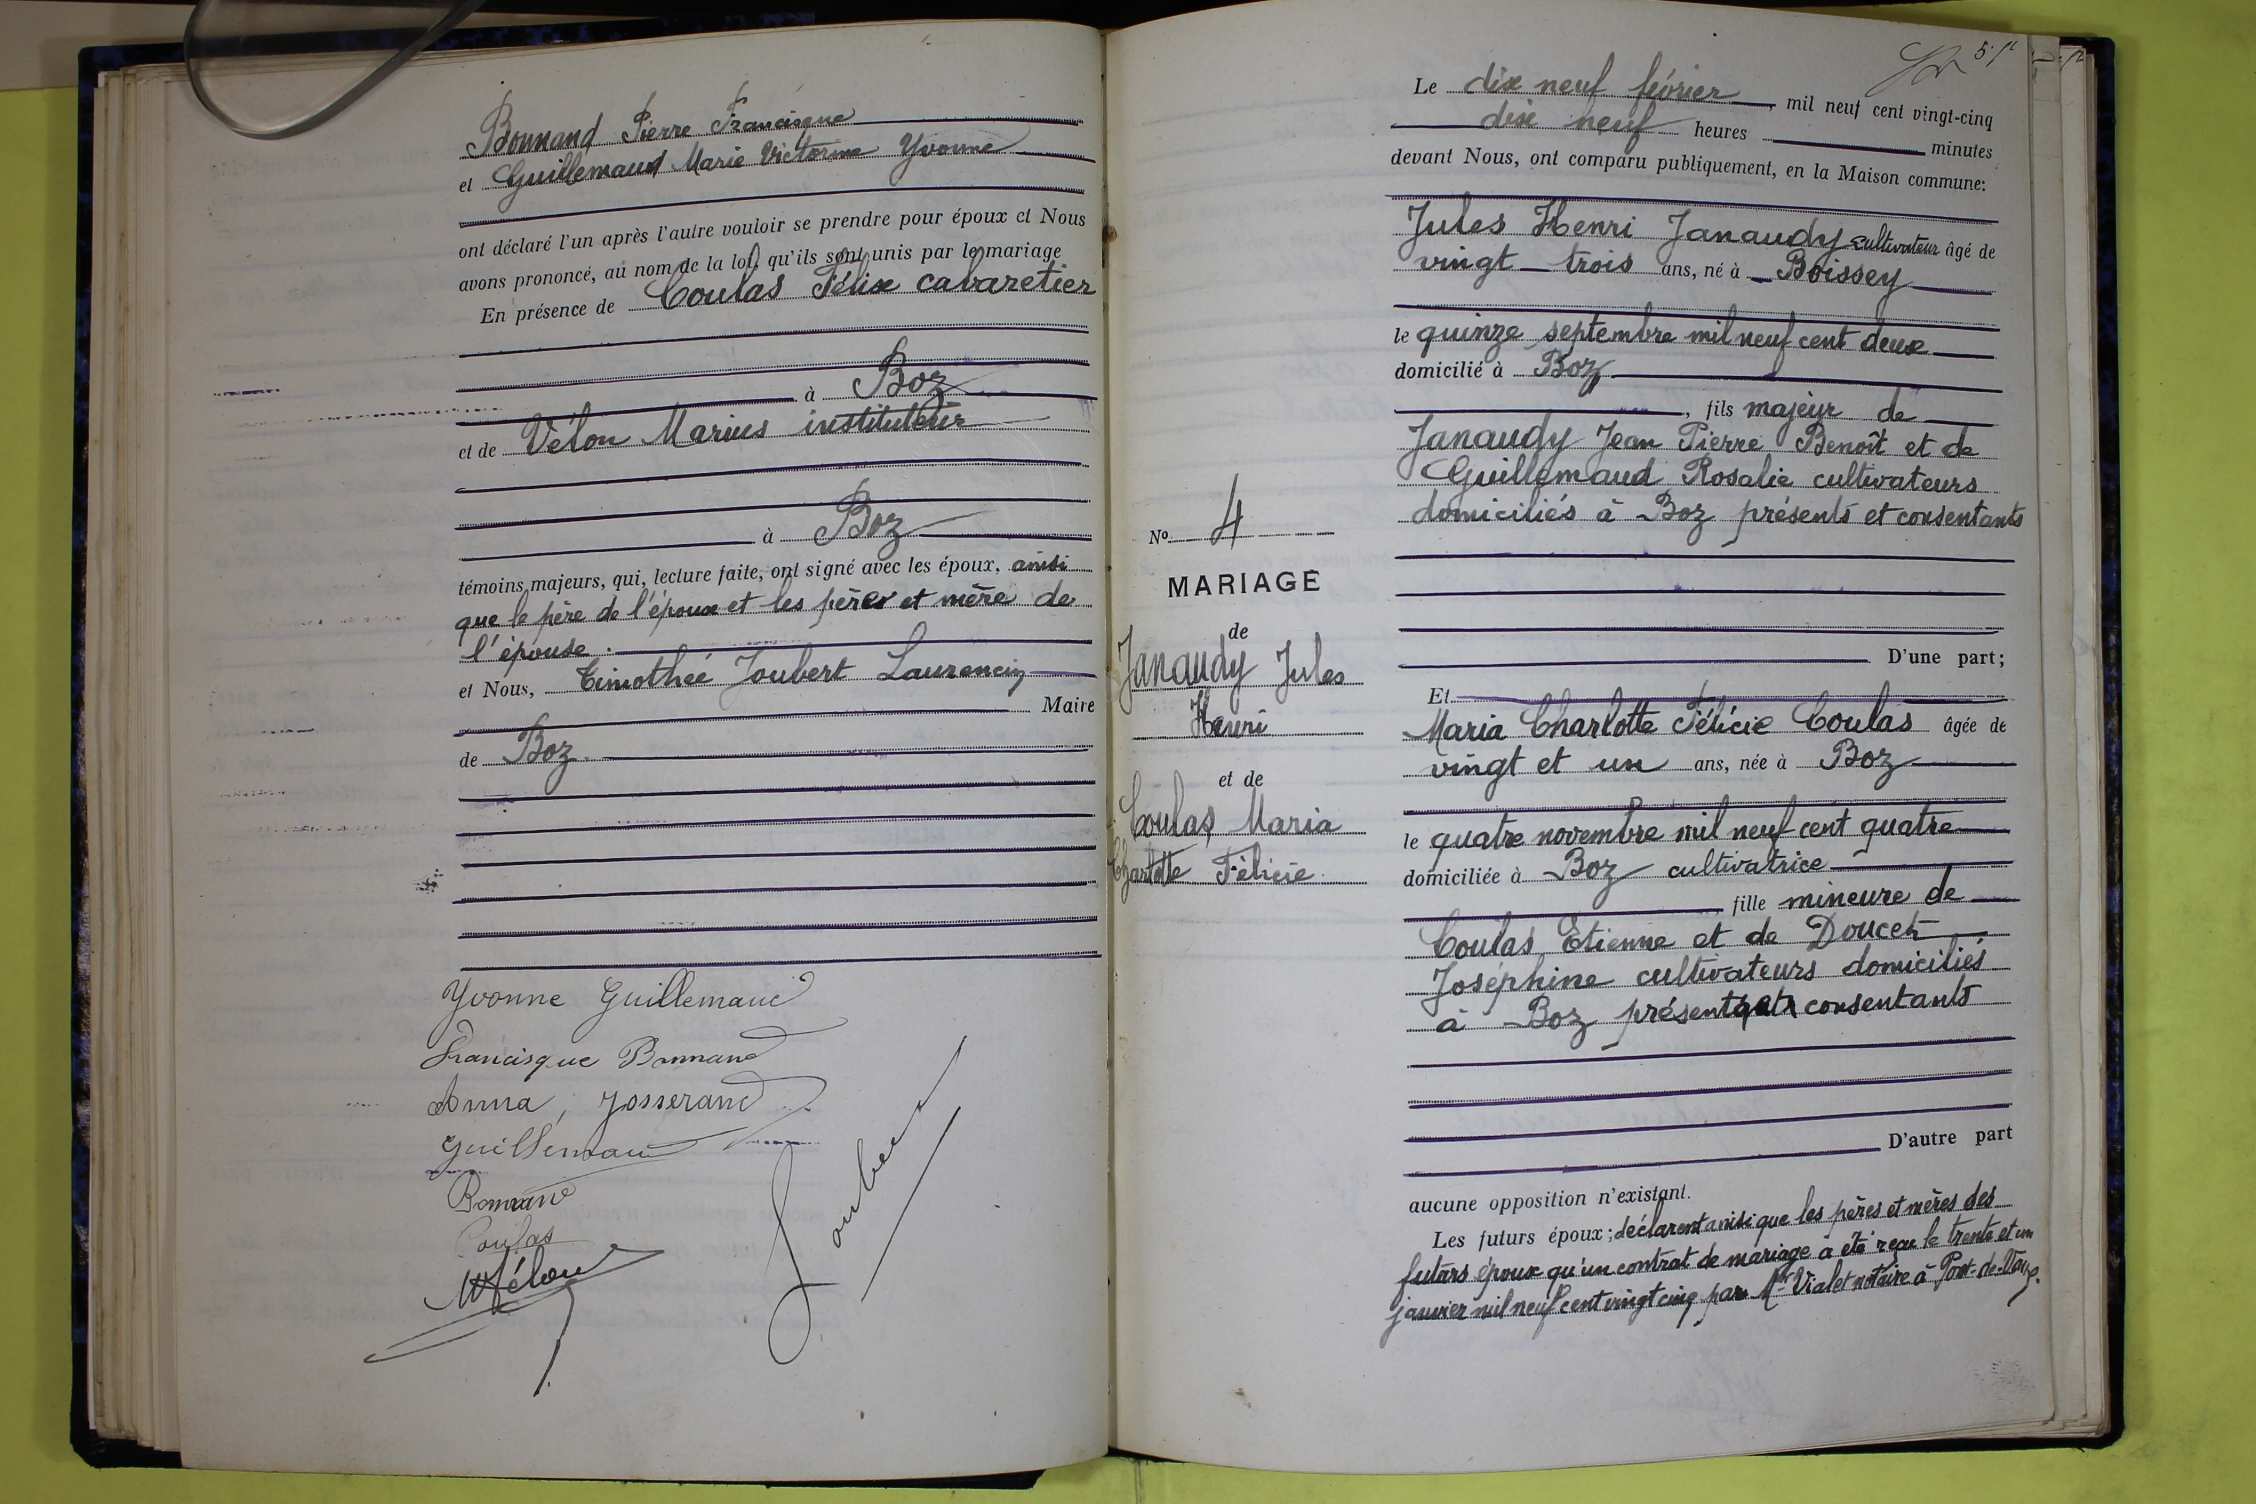 Bonnand Pierre Francisque
et Guillemaud Marie Victorine Yvonne
ont déclaré l'un après l'autre vouloir se prendre pour époux et Nous
avons prononcé, au nom de la loi, qu'ils sont unis par le mariage
En présence de Coulas Félix cabaretier
à Boz
et de Vélon Marius instituteur
à Boz
témoins majeurs, qui, lecture faite, ont signé avec les époux, ainsi
que le père de l'époux et les pères et mère de
l'épouse.
et Nous, Timothée Joubert Laurencin
Maire
de Boz
Yvonne Guillemaud
Francisque Bonnand
Anna Josserand
Guillemaud
Bonnand
Coulas
Vélon
Joubert
Le dix neuf février mil neuf cent vingt-cinq
dix neuf heures minutes
devant Nous, ont comparu publiquement, en la Maison commune:
Jules Henri Janaudy cultivateur âgé de
vingt-trois ans, né à Boissey
le quinze septembre mil neuf cent deux
domicilié à Boz
, fils majeur de
Janaudy Jean Pierre Benoît et de
Guillemaud Rosalie cultivateurs
domiciliés à Boz présents et consentants
No 4
MARIAGE
de
Janaudy Jules
Henri
et de
Coulas Maria
Charlotte Félicie
D'une part;
Et
Maria Charlotte Félicie Coulas âgée de
vingt et un ans, née à Boz
le quatre novembre mil neuf cent quatre
domiciliée à Boz cultivatrice
fille mineure de
Coulas Etienne et de Doucet
Joséphine cultivateurs domiciliés
à Boz présents et consentants
D'autre part
aucune opposition n'existant.
Les futurs époux; déclarent ainsi que les pères et mères des
futurs époux qu'un contrat de mariage a été reçu le trente et un
janvier mil neuf cent vingt cinq par Me Vialet notaire à Pont-de-Vaux.